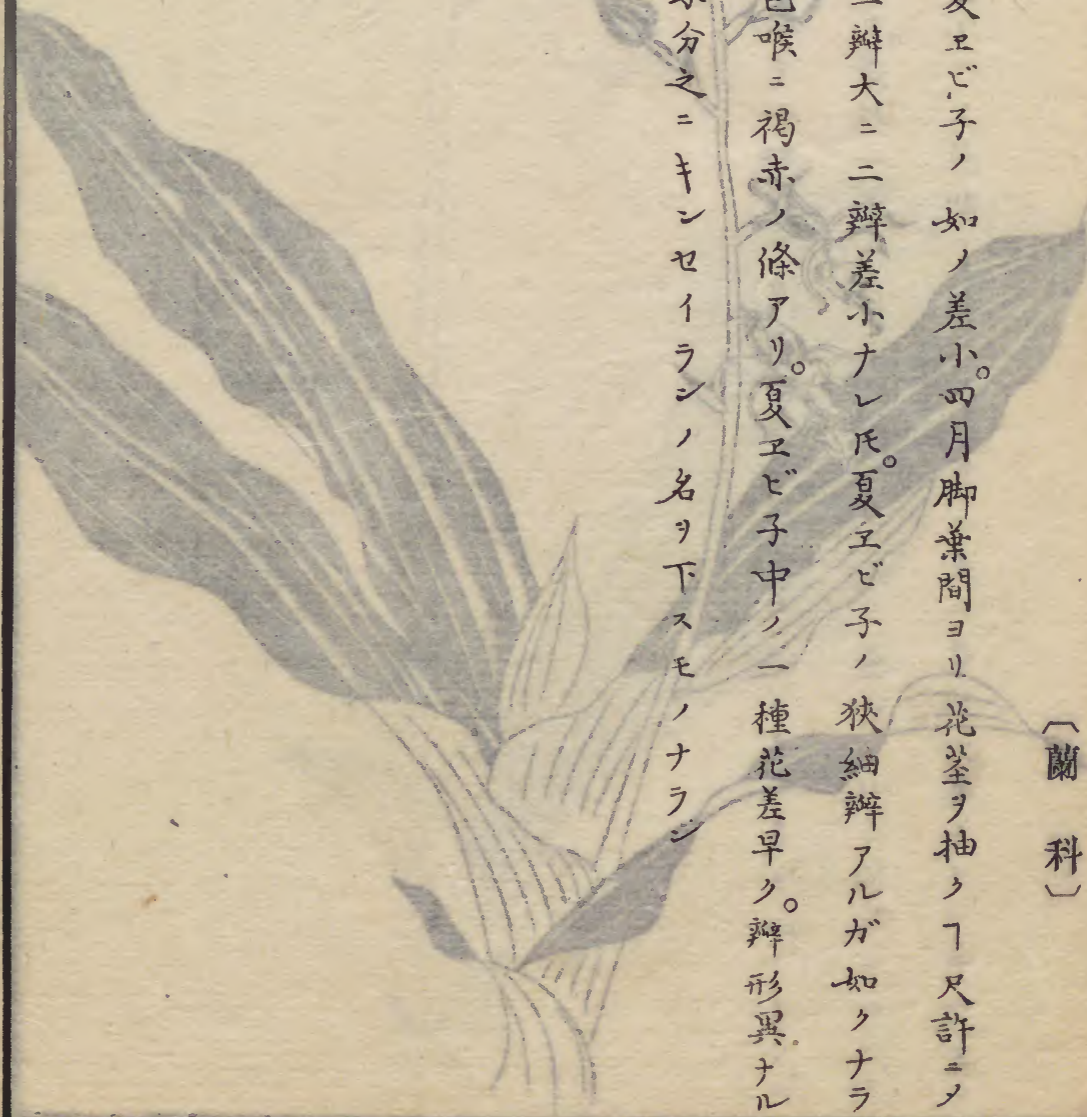 〔蘭科〕
ヱビ子ノ如ノ差小。四月脚葉間ヨリ花茎ヲ抽クヿ尺許ニメ
辧大ニ二辧差小ナレ𪜈。夏ヱビ子ノ狹細辧アルガ如クナラ
喉ニ褐赤ノ條アリ。夏ヱビ子中ノ一種花差早ク。辧形異ナル
分之ニキンセイランノ名ヲ下スモノナラン